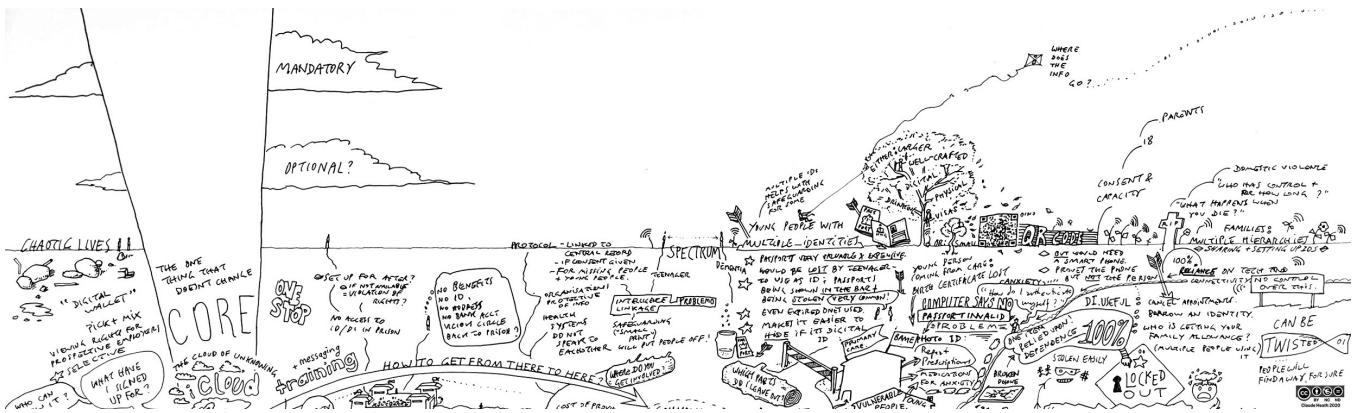 MANDATORY
OPTIONAL?
CHAOTIC LIVES
"DIGITAL
WALLET"
PICK + MIX
VIEWING RIGHTS FOR
PROSPECTIVE EMPLOYERS
SELECTIVE
WHO CAN
IT?
WHAT HAVE
I SIGNED
UP FOR?
THE ONE
THING THAT
DOESN'T CHANGE
CORE
THE CLOUD OF UNKNOWING
iCloud
ONE
STOP
+ messaging
training
SET UP FOR AFTER?
IF NOT AVAILABLE
= VIOLATION OF
RIGHTS?
NO ACCESS TO
ID/DI IN PRISON
NO BENEFITS
NO ID
NO ADDRESS
NO BANK ACCT
VICIOUS CIRCLE
BACK TO PRISON?
HOW TO GET FROM THERE TO HERE?
PROTOCOL - LINKED TO
CENTRAL RECORD
- IF CONSENT GIVEN
- FOR MISSING PEOPLE
+ YOUNG PEOPLE.
ORGANISATIONS
PROTECTIVE
OF INFO
HEALTH
SYSTEMS
DO NOT
SPEAK TO
EACHOTHER
TEENAGER
SPECTRUM
DEMENTIA
INTEROCEPE PROBLEMS
LINKAGE
SAFEGUARDING
("SMALL
PRINT")
WILL PUT PEOPLE OFF!
WHERE DO YOU
GET INVOLVED?
COST OF
MULTIPLE IDS
HELPS WITH
SAFEGUARDING
FOR SOME
YOUNG PEOPLE WITH
MULTIPLE IDENTITIES
PASSPORT VERY VALUABLE & EXPENSIVE
WOULD BE LOST BY TEENAGER
TO USE AS ID; PASSPORTS
BEING SHOWN IN THE BAR +
BEING STOLEN (VERY COMMON!)
EVEN EXPIRED ONES USED.
MAKES IT EASIER TO
HIDE IF ITS DIGITAL
ID
WHICH PARTS
DO I LEAVE OUT?
PRIMARY
CARE
VULNERABLE YOUNG
PEOPLE.
EITHER LARGER
WELL-CRAFTED
DIGITAL
PHYSICAL
DRINKING
VISAS
OR SMALL
QR CODE
YOUNG PERSON
COMING FROM CARE:
BIRTH CERTIFICATE LOST
COMPUTER SAYS NO
PASSPORT INVALID
PROBLEM
SAME PHOTO ID:
Repeat
Prescriptions
MEDICATIONS
FOR ANXIETY
BROKEN
PHONE
ANXIETY!!!!
"How do I authenticate
myself?"
WHERE
DOES
THE
INFO
GO?
PARENTS
18
CONSENT &
CAPACITY
BUT WOULD NEED
A SMART PHONE.
PROVES THE PHONE
BUT NOT THE PERSON
DI. USEFUL
ONE ITEM
RELIED UPON!
DEPENDENCE
100%
STOLEN EASILY
LOCKED
OUT
DOMESTIC VIOLENCE
"WHO HAS CONTROL +
FOR HOW LONG?"
"WHAT HAPPENS WHEN
YOU DIE?"
R.I.P
FAMILIES:
MULTIPLE HIERARCHIES
SHARING + SETTING UP IDS
100%
RELIANCE ON TECH AND
CONNECTIVITY
NO CONTROL
OVER THIS.
CANCEL APPOINTMENTS.
BORROW AN IDENTITY.
WHO IS GETTING YOUR
FAMILY ALLOWANCE?
(MULTIPLE PEOPLE USING
IT
CAN BE
TWISTED
PEOPLE WILL
FIND A WAY FOR SURE
BY NC ND
Claude Heath 2020